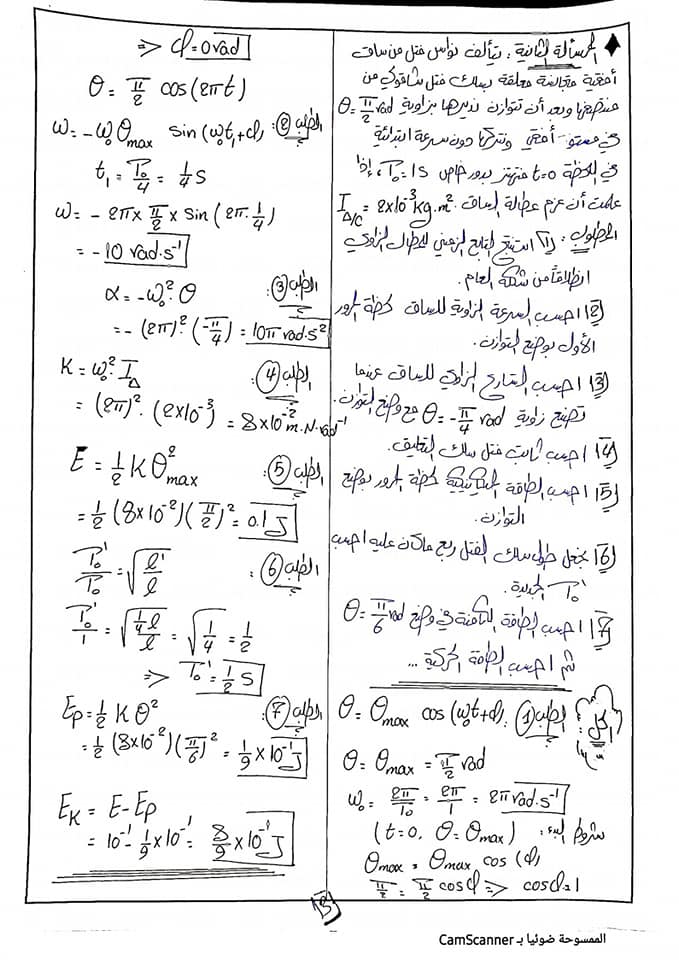 المسألة الثانية: يتألف نواس فتل من ساق
أفقية متجانسة معلقة بسلك فتل شاقولي من
منتصفها وبعد أن تتوازن نديرها بزاوية θ = π/2 rad
في مستوٍ أفقي ونتركها دون سرعة ابتدائية
في اللحظة t=0 فتهتز بدور خاص T₀ = 1s، إذا
علمت أن عزم عطالة الساق I_Δ/C = 2×10⁻³ kg.m²
المطلوب: 1) استنتج التابع الزمني للمطال الزاوي
انطلاقاً من شكله العام.
2) احسب السرعة الزاوية للساق لحظة المرور
الأول بوضع التوازن.
3) احسب التسارع الزاوي للساق عندما
تصنع زاوية θ = -π/4 rad مع وضع التوازن.
4) احسب ثابت فتل سلك التعليق.
5) احسب الطاقة الميكانيكية لحظة المرور بوضع
التوازن.
6) نجعل طول سلك الفتل ربع ماكان عليه احسب
T₀' الجديدة.
7) احسب الطاقة الكامنة في وضع θ = π/6 rad
ثم احسب الطاقة الحركية ...
الحل:
الطلب 1: θ = θmax cos(ω₀t+φ)
θ = θmax = π/2 rad
ω₀ = 2π/T₀ = 2π/1 = 2π rad.s⁻¹
شروط البدء: (t=0, θ=θmax)
θmax = θmax cos(φ)
π/2 = π/2 cosφ => cosφ=1
=> φ=0 rad
θ = π/2 cos(2πt)
الطلب 2: ω = -ω₀θmax sin(ω₀t₁+φ)
t₁ = T₀/4 = 1/4 s
ω = -2π × π/2 × sin(2π.1/4)
= -10 rad.s⁻¹
الطلب 3: α = -ω₀².θ
= -(2π)².(-π/4) = 10π rad.s²
الطلب 4: K = ω₀² I_Δ
= (2π)².(2×10⁻³) = 8×10⁻² m.N.rad⁻¹
الطلب 5: E = 1/2 K θ²max
= 1/2 (8×10⁻²)(π/2)² = 0.1 J
الطلب 6: T₀'/T₀ = √(l'/l)
T₀'/1 = √(1/4 l / l) = √(1/4) = 1/2
=> T₀' = 1/2 s
الطلب 7: Ep = 1/2 K θ²
= 1/2 (8×10⁻²)(π/6)² = 1/9 × 10⁻¹ J
E_K = E - Ep
= 10⁻¹ - 1/9 × 10⁻¹ = 8/9 × 10⁻¹ J
13
الممسوحة ضوئيا بـ CamScanner